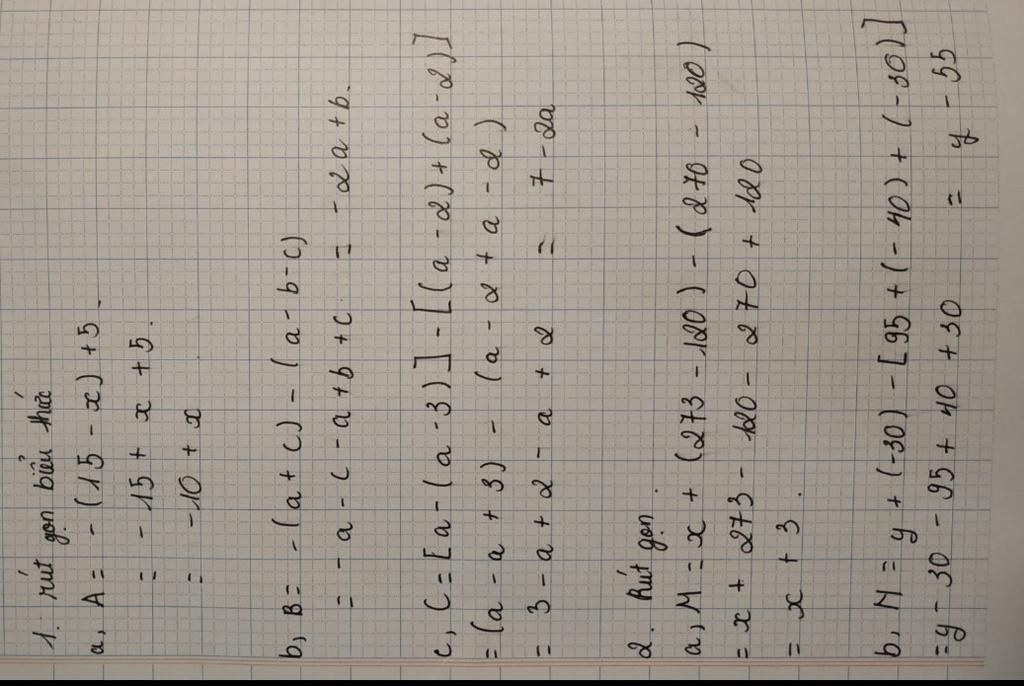 1. rút gọn biểu thức
a, A = - (15 - x) + 5.
= - 15 + x + 5.
= -10 + x
b, B = - (a + c) - (a - b - c)
= - a - c - a + b + c = - 2a + b.
c, C = [a - (a - 3)] - [(a - 2) + (a - 2)]
= (a - a + 3) - (a - 2 + a - 2)
= 3 - a + 2 - a + 2 = 7 - 2a
2. Rút gọn.
a, M = x + (273 - 120) - (270 - 120)
= x + 273 - 120 - 270 + 120
= x + 3.
b, N = y + (-30) - [95 + (-40) + (-30)]
= y - 30 - 95 + 40 + 30 = y - 55